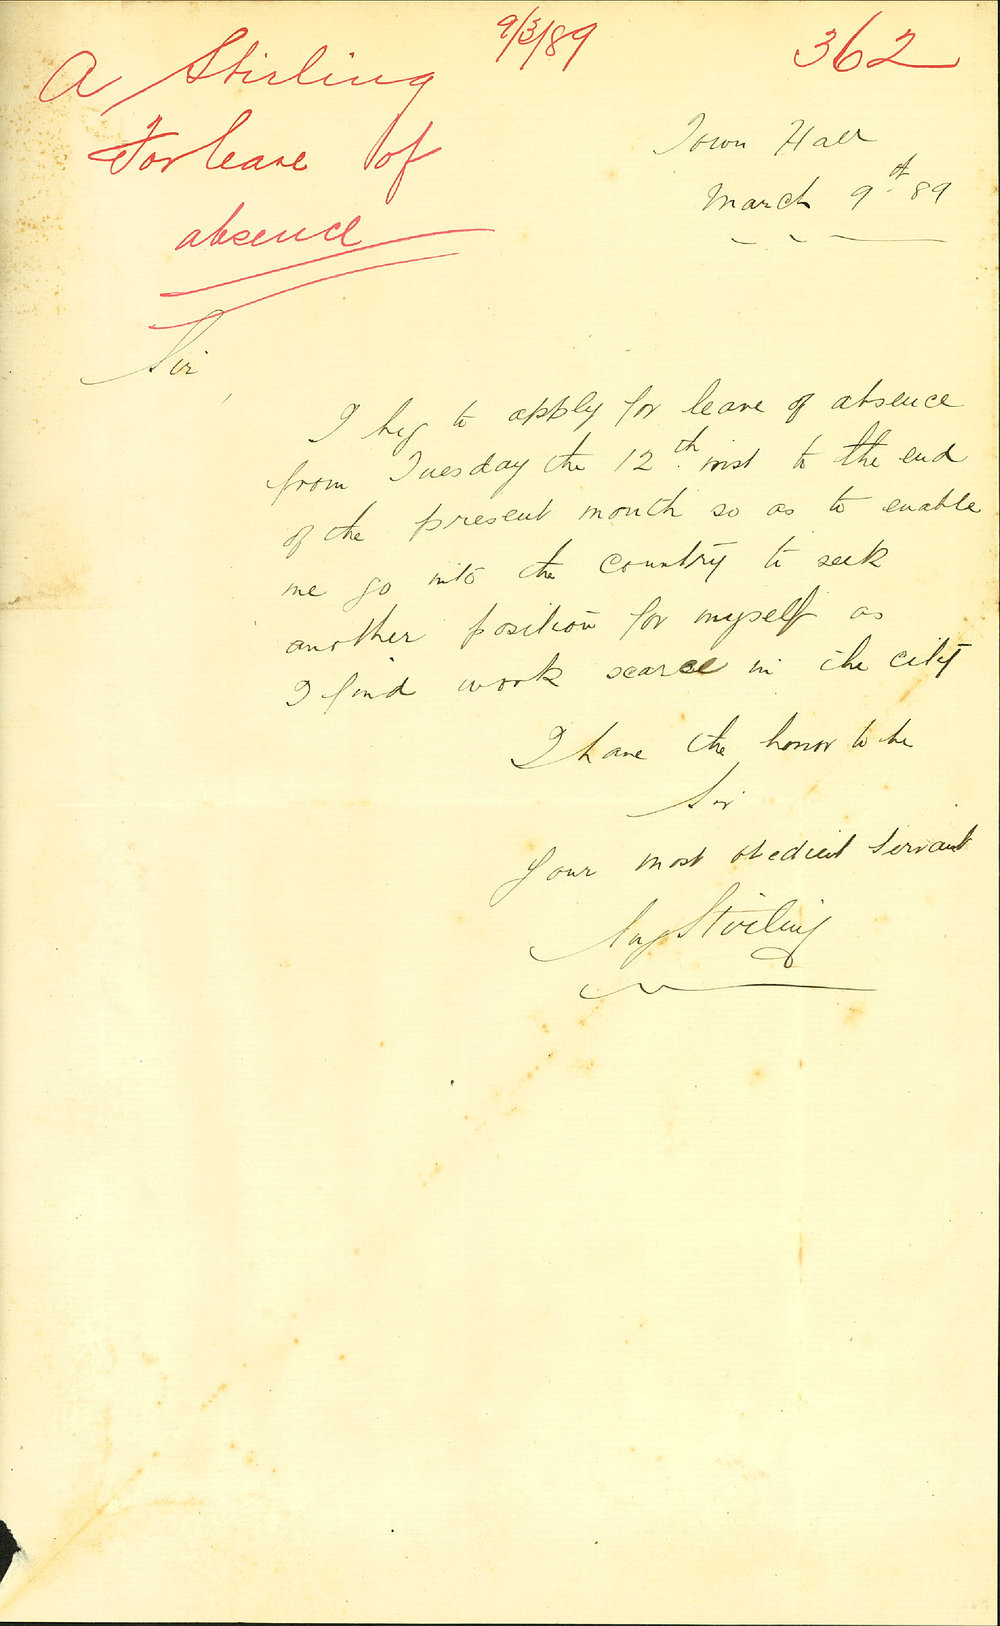 9/3/89
362
A Stirling
For leave of
absence
Town Hall
March 9th 89
Sir,
I beg to apply for leave of absence
from Tuesday the 12th inst to the end
of the present month so as to enable
me go into the country to seek
another position for myself as
I find work scarce in the city
I have the honor to be
Sir
Your most obedient servant
Stirling